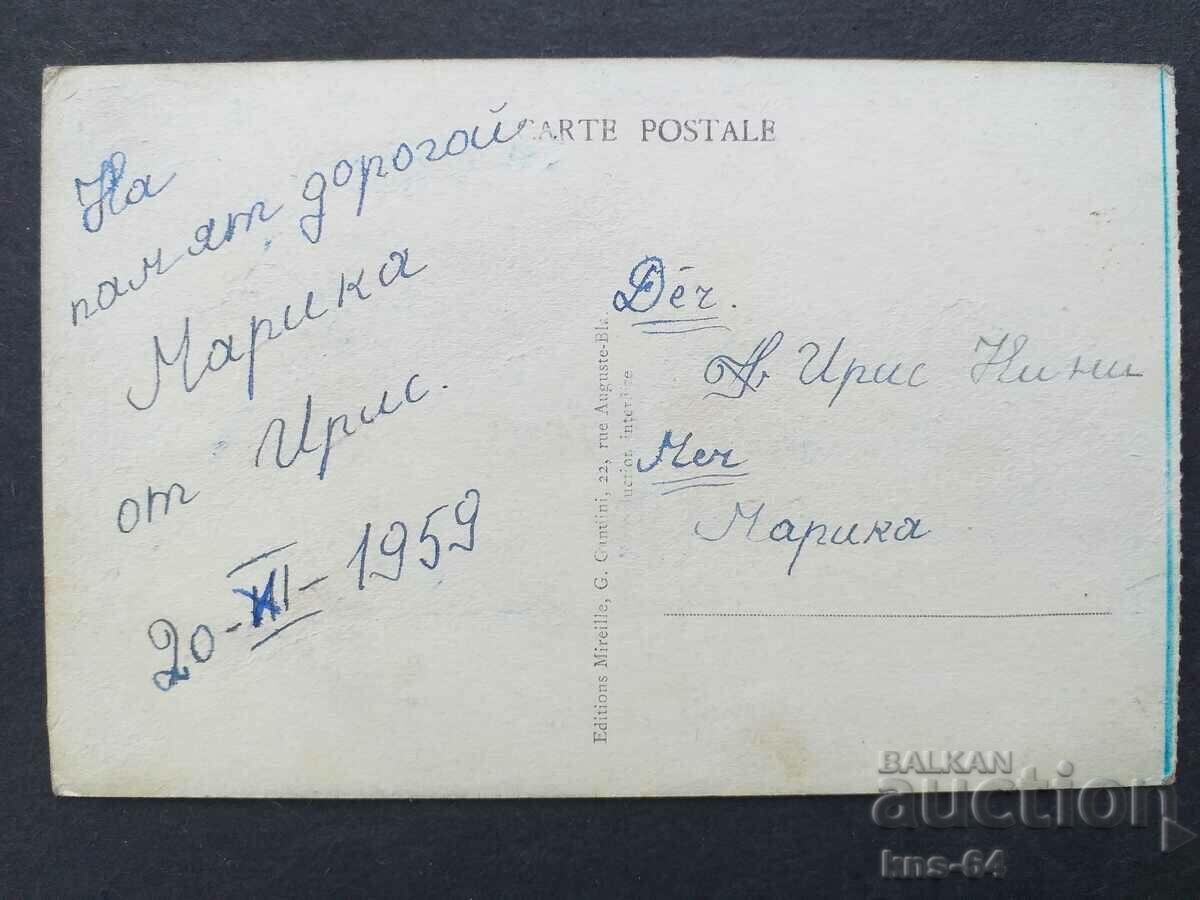 CARTE POSTALE
На
памят дорогой
Марика
от Ирис.
20-XII-1959
Editions Mireille, G. Gontini, 22, rue Auguste-Bla
uction interdite
Ирис Нини
Марика
BALKAN
auction
kns-64